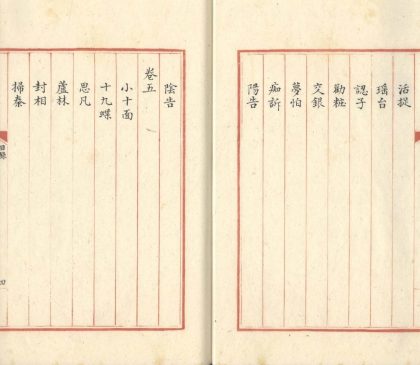 活捉
瑶台
認子
勸粧
交銀
夢怕
痴訴
陽告
陰告
卷五
小十面
十九蝶
思凡
蘆林
封相
掃秦
目錄
四